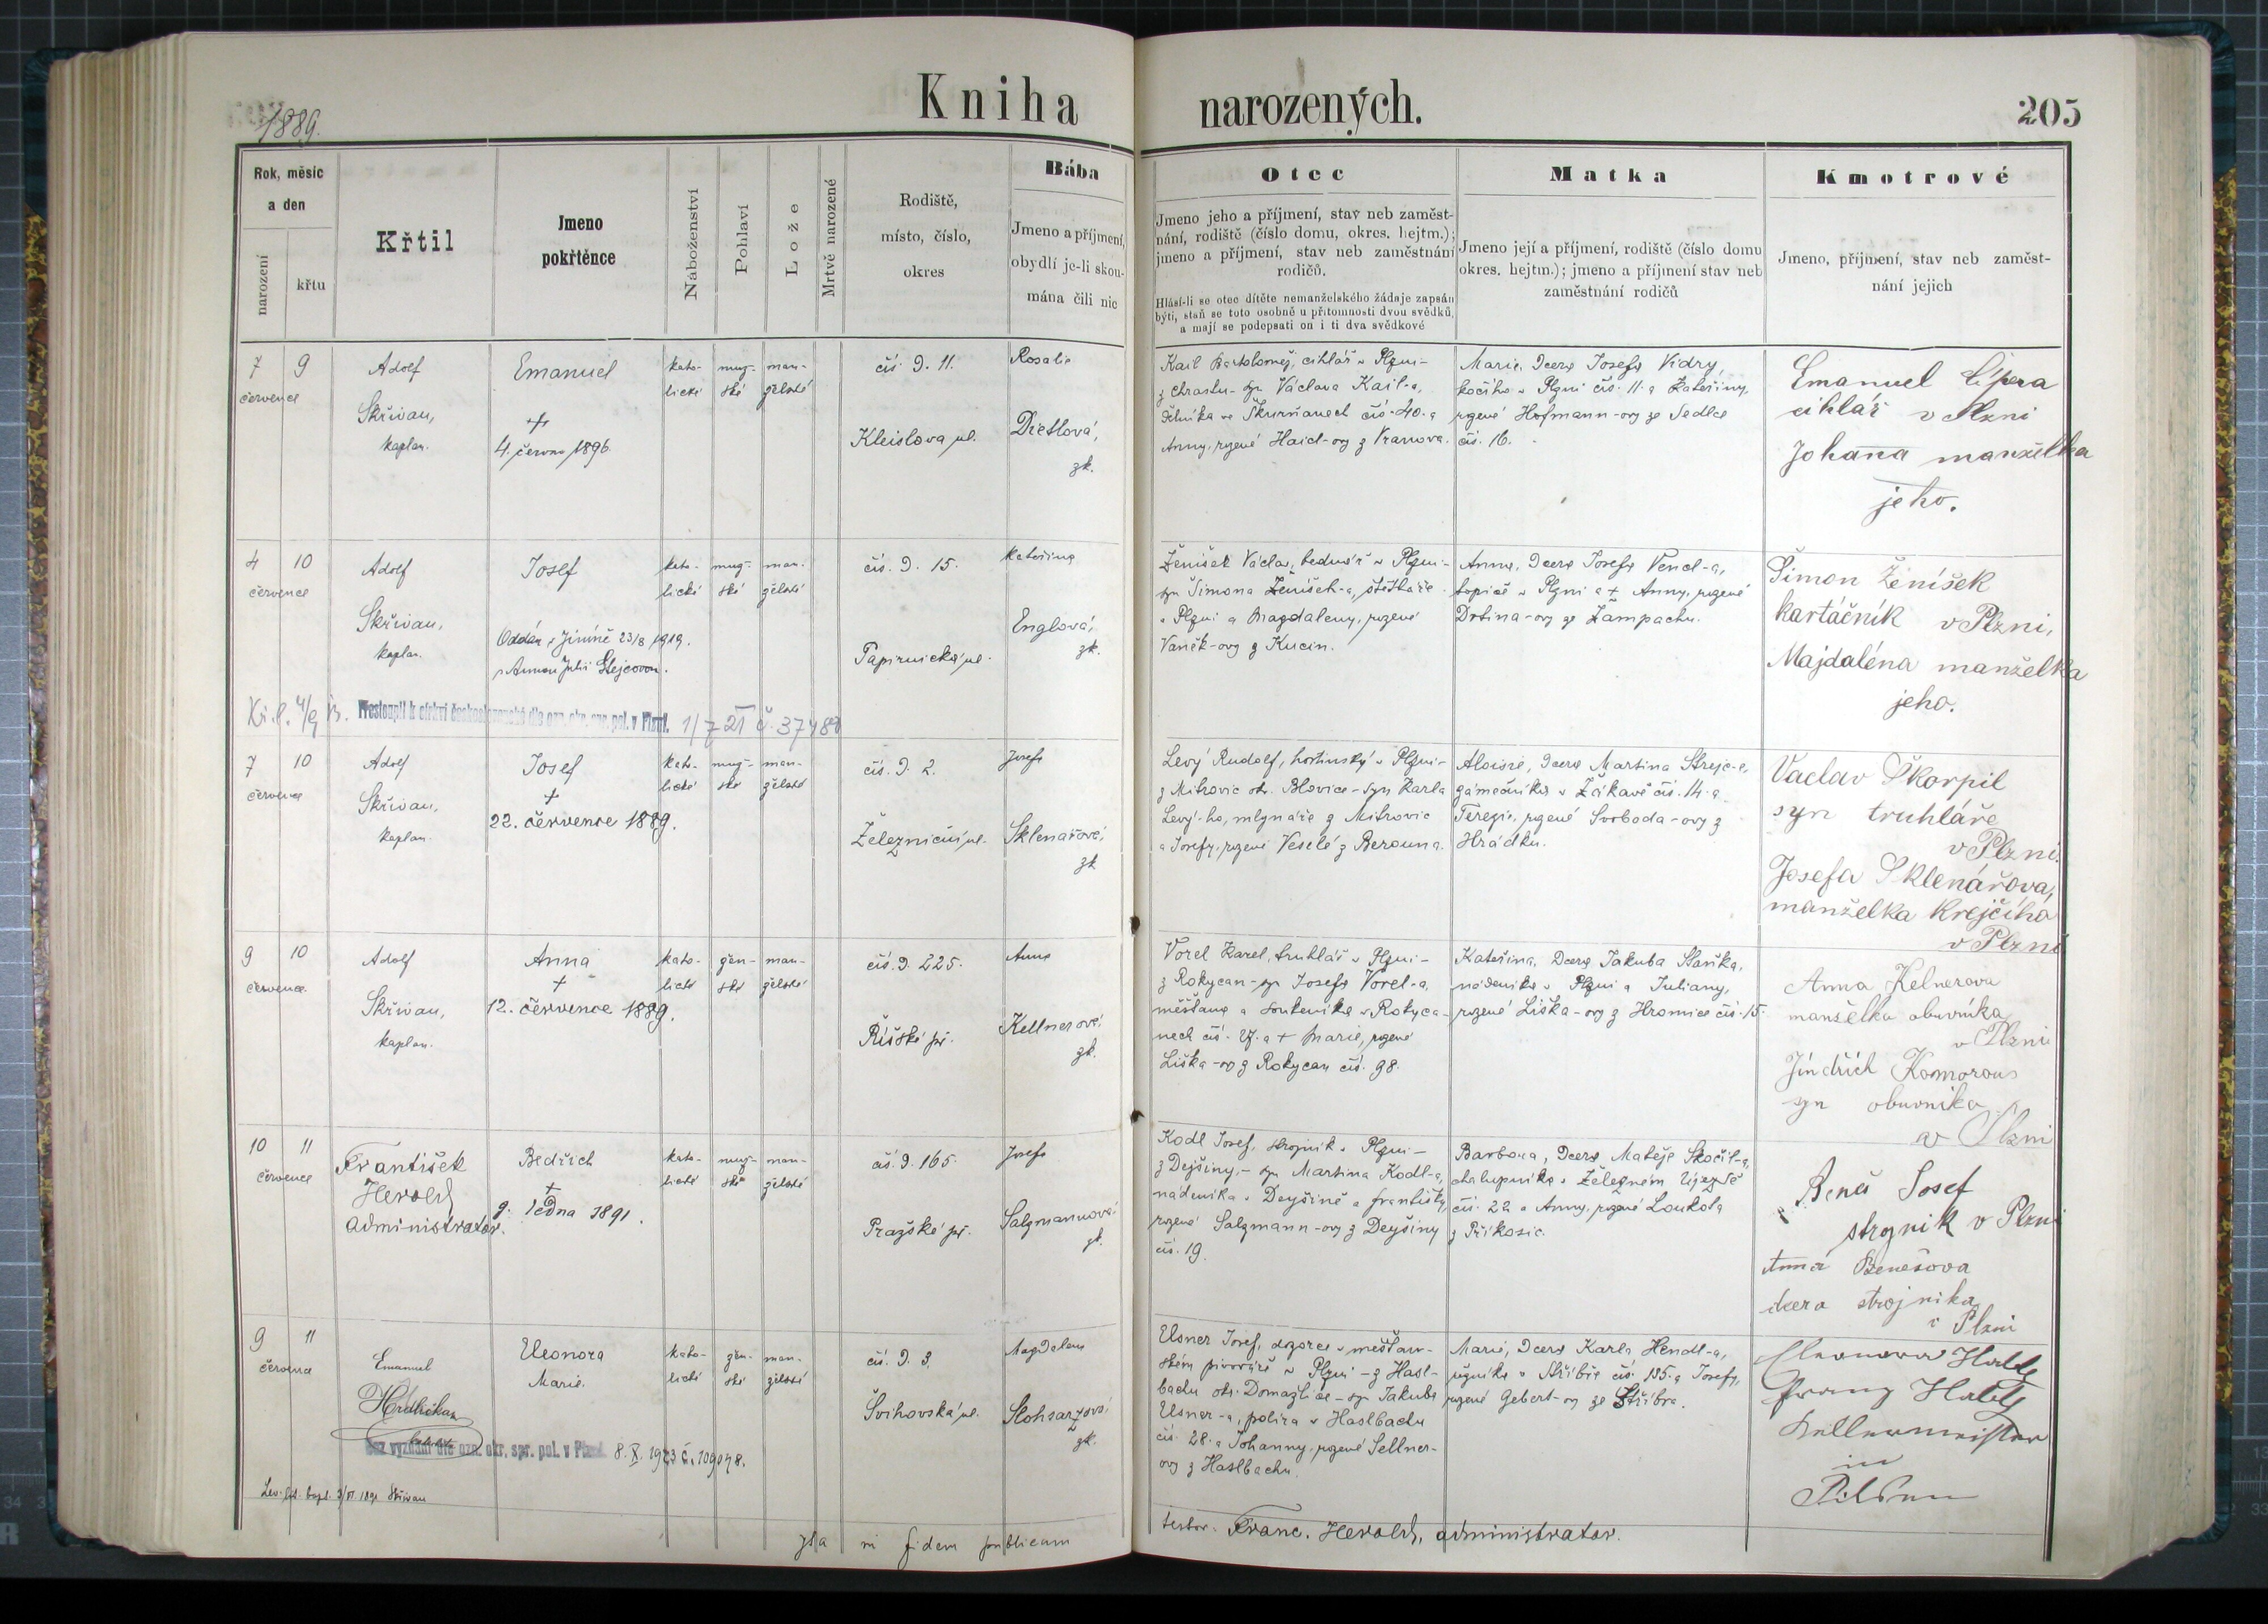 1889.
Kniha narozených.
205
Rok, měsíc
a den
narození
křtu
Křtil
Jmeno
pokřtěnce
Náboženství
Pohlaví
Lože
Mrtvě narozené
Rodiště,
místo, číslo,
okres
Bába
Jmeno a příjmení,
obydlí je-li skou-
mána čili nic
Otec
Jmeno jeho a příjmení, stav neb zaměst-
nání, rodiště (číslo domu, okres. hejtm.);
jmeno a příjmení, stav neb zaměstnání
rodičů.
Hlásí-li se otec dítěte nemanželského žádaje zapsán
býti, staň se toto osobně u přítomnosti dvou svědků,
a mají se podepsati on i ti dva svědkové
Matka
Jmeno její a příjmení, rodiště (číslo domu
okres. hejtm.); jmeno a příjmení stav neb
zaměstnání rodičů
Kmotrové
Jmeno, příjmení, stav neb zaměst-
nání jejich
7 9
července
Adolf
Skřivan,
kaplan.
Emanuel
+
4. června 1896.
kato-
lické
muž-
ské
man-
želské
čís. d. 11.
Kleislova ul.
Rosalie
Dietlová,
zk.
Kail Bartoloměj, cihlář v Plzni -
z Chrastu - syn Václava Kail-a,
dělníka ve Škurňanech čís. 40. a
Anny, rozené Haid-ovy z Vranova.
Marie, dcera Josefa Vidry,
kočího v Plzni čís. 11. a Kateřiny,
rozené Hofmann-ovy ze Sedlce
čís. 16.
Emanuel Cípera
cihlář v Plzni
Johana manželka
jeho.
4 10
července
Adolf
Skřivan,
kaplan.
Josef
Oddán v Jiníně 23/8 1919.
s Annou Julií Stejcovou.
kato-
lické
muž-
ské
man-
želské
čís. d. 15.
Papírnická ul.
Kateřina
Englová,
zk.
Ženíšek Václav, bednář v Plzni -
syn Šimona Ženíšek-a, štětkaře
v Plzni a Magdaleny, rozené
Vaněk-ovy z Kucin.
Anna, dcera Josefa Vencl-a,
topiče v Plzni a + Anny, rozené
Drtina-ovy ze Žampachu.
Šimon Ženíšek
kartáčník v Plzni,
Majdaléna manželka
jeho.
Přestoupil k církvi československé dle ozn. okr. spr. pol. v Plzni. 1/7 21 č. 37488
7 10
července
Adolf
Skřivan,
kaplan.
Josef
+
22. července 1889.
kato-
lické
muž-
ské
man-
želské
čís. d. 2.
Železniční ul.
Josefa
Sklenářová,
zk
Levý Rudolf, hostinský v Plzni -
z Mitrovic okr. Blovice - syn Karla
Levý-ho, mlynáře z Mitrovic
a Josefy, rozené Veselé z Berouna.
Aloisie, dcera Martina Strejc-e,
zámečníka v Žákavě čís. 14. a
Terezie, rozené Svoboda-ovy z
Hrádku.
Vaclav Škorpil
syn truhláře
v Plzni.
Josefa Sklenářova,
manželka Krejčího
v Plzni
9 10
července.
Adolf
Skřivan,
kaplan.
Anna
+
12. července 1889.
kato-
lické
žen-
ské
man-
želské
čís. d. 225.
Říšské př.
Anna
Kellnerová
zk.
Vorel Karel, truhlář v Plzni -
z Rokycan - syn Josefa Vorel-a,
měšťana a soukeníka v Rokyca-
nech čís. a + Marie, rozené
Liška-ovy z Rokycan čís. 98.
Kateřina, dcera Jakuba Staňka,
nádeníka v Plzni a Juliany,
rozené Liška-ovy z Hromice čís. 15.
Anna Kelnerova
manželka obuvníka
v Plzni
Jindřich Komorous
syn obuvníka
v Plzni
10 11
července
František
Herold
administrator.
Bedřich
+
9. ledna 1891.
kato-
lické
muž-
ské
man-
želské
čís. d. 165.
Pražské př.
Josefa
Salzmannová
zk.
Kodl Josef, strojník v Plzni -
z Dejšiny, - syn Martina Kodl-a,
nádeníka v Deyšině a Františky,
rozené Salzmann-ovy z Deyšiny
čís. 19.
Barbora, dcera Matěje Skočil-a,
chalupníka v Železném Újezdě
čís. 22 a Anny, rozené Loukota
z Příkosic.
Beneš Josef
strojník v Plzni
Anna Benešova
dcera strojníka
v Plzni
9 11
června
Emanuel
Hrdlička
Eleonora
Marie.
kato-
lické
žen-
ské
man-
želské
čís. d. 3.
Švihovská ul.
Magdalena
zk.
Elsner Josef, dozorce v měšťan-
ském pivováře v Plzni - z Hasl-
bachu okr. Domažlice - syn Jakuba
Elsner-a, polira v Haslbachu
čís. 28. a Johanny, rozené Sellner-
ovy z Haslbachu.
Marie, dcera Karla Hendl-a,
v Stříbře čís. 135. a Josefy,
rozené Gebert-ovy ze Stříbra.
Kellermeister
in
Pilsen
Bez vyznání dle ozn. okr. spr. pol. v Plzni. 8. X. 1923 č. 109048.
Ita in fidem publicam
testor. Franc. Herold, administrator.